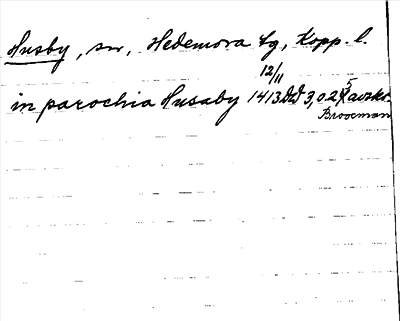 Husby, sn, Hedemora tg, Kopp. l.
12/11
in parochia Husaby 1413 DD 3,
Brooman